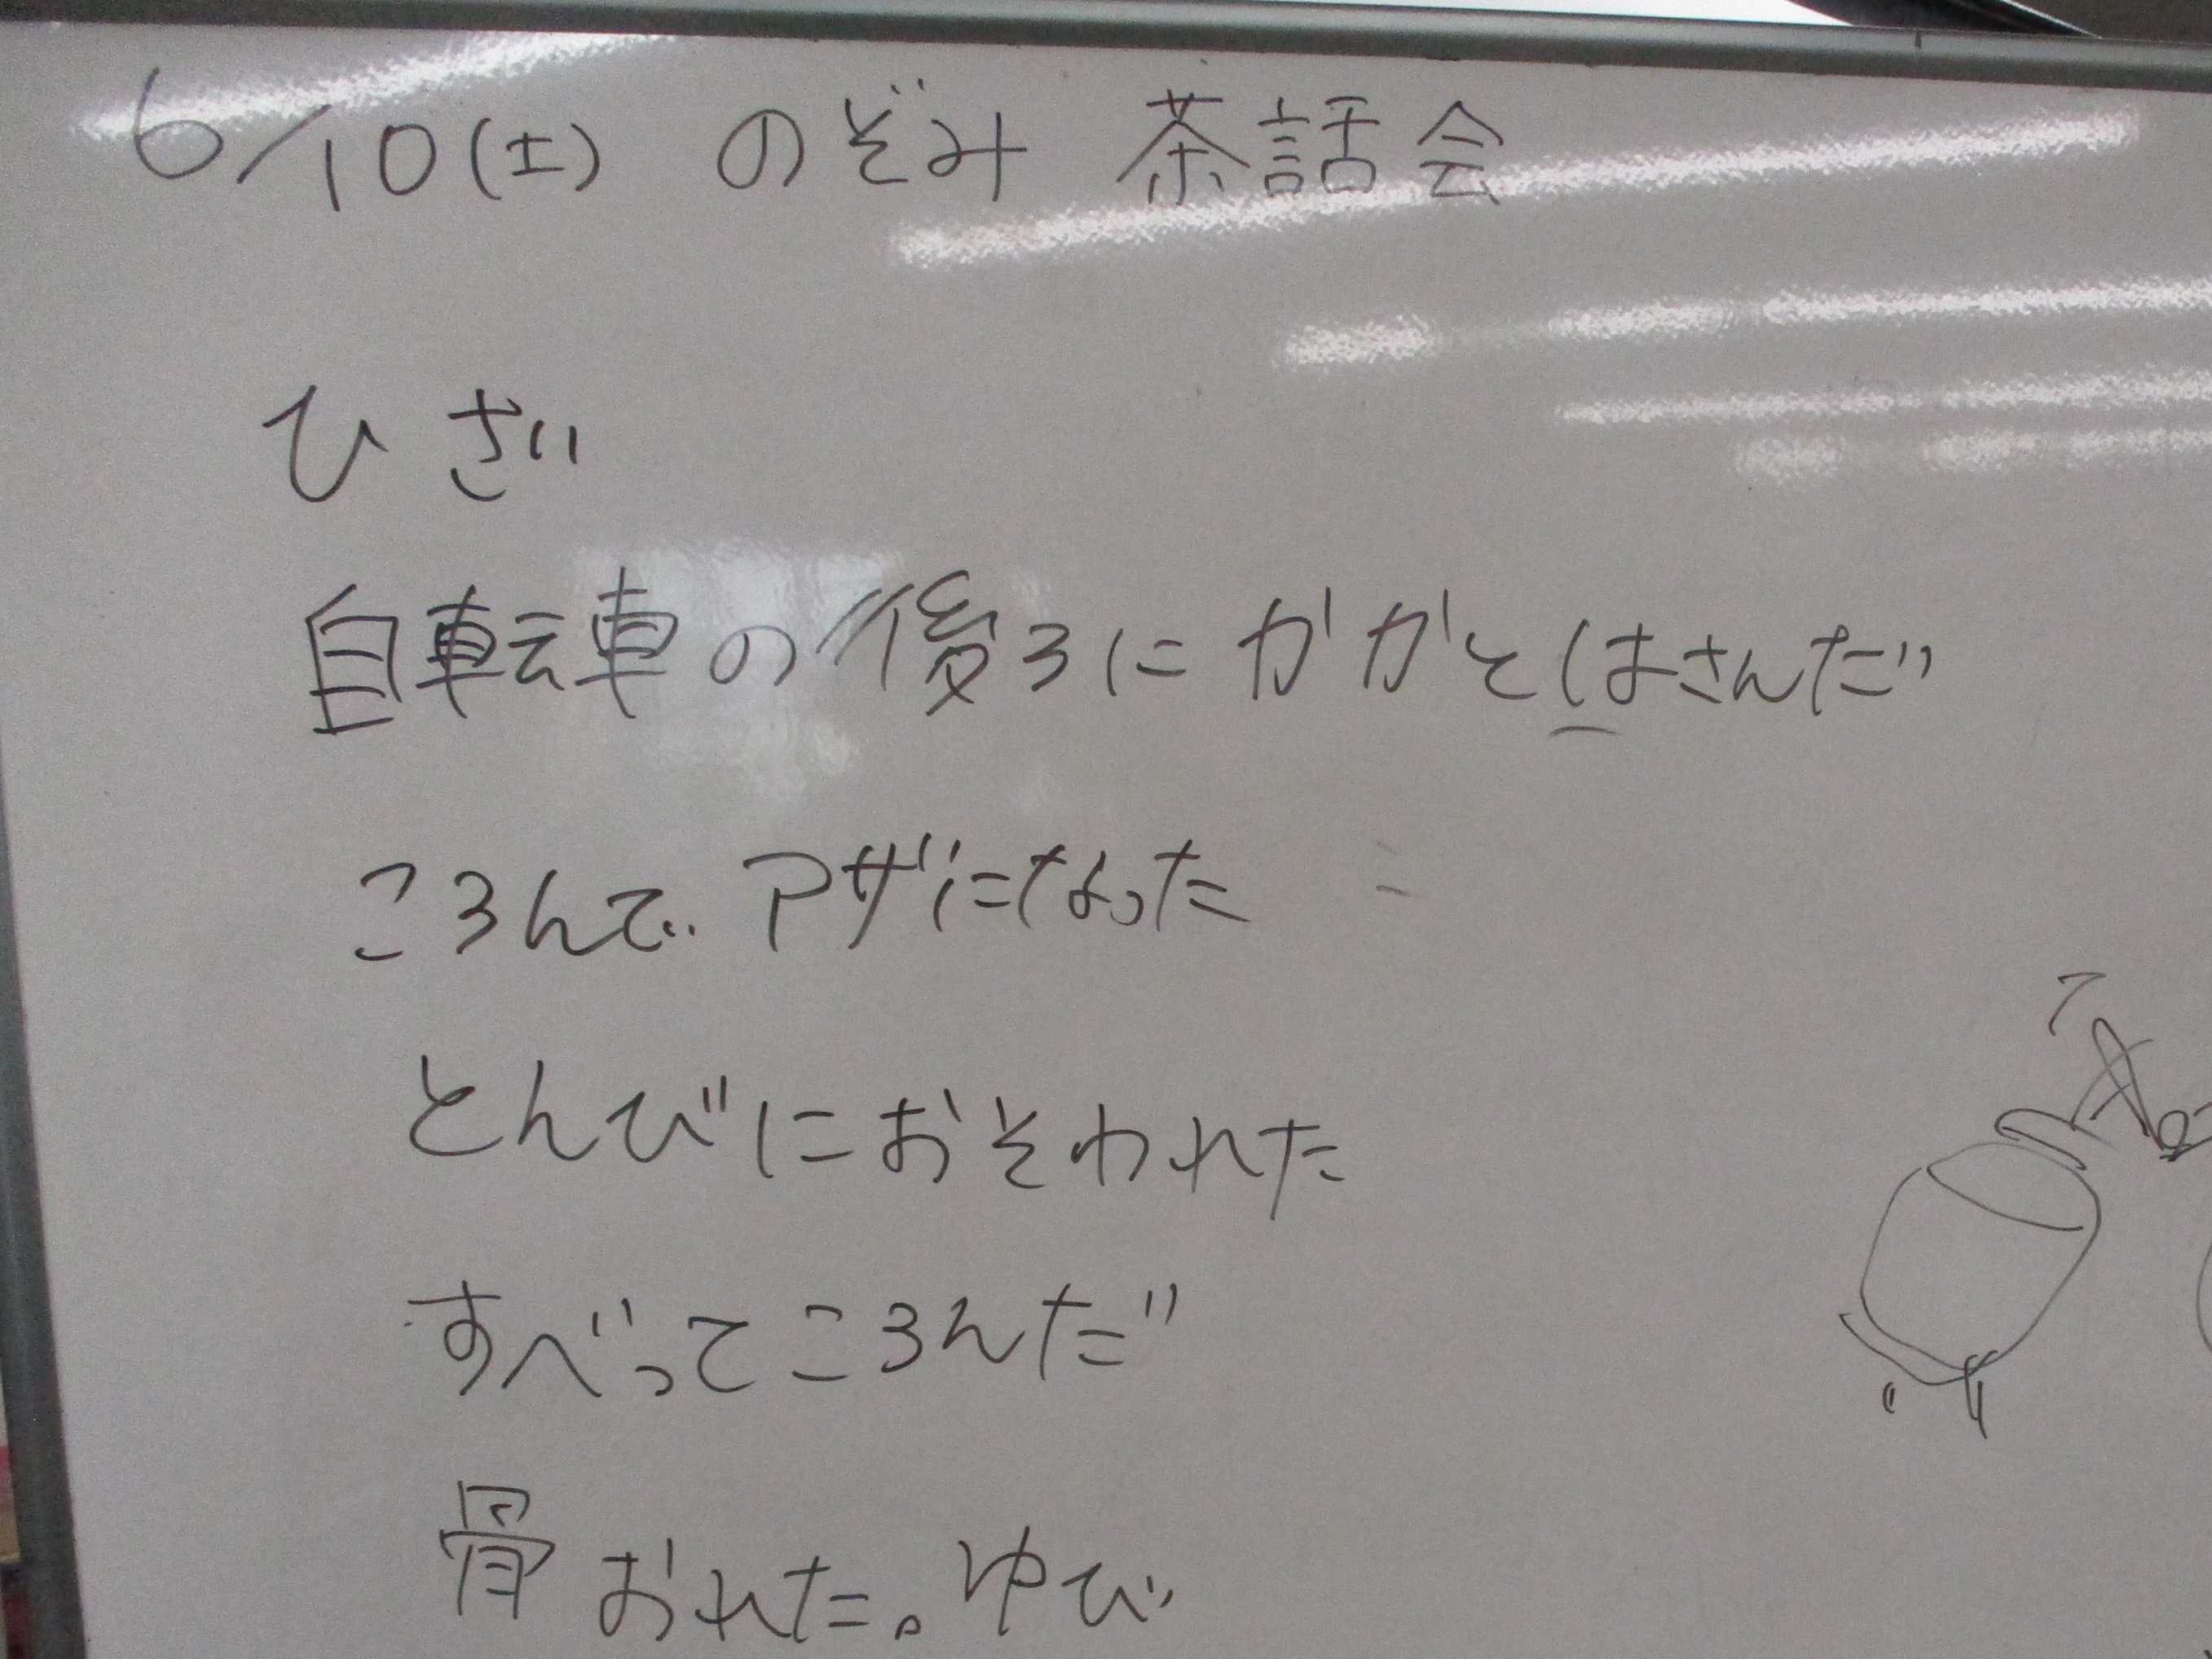 6/10(土) のぞみ 茶話会
ひさい
自転車の後ろにかかとはさんだ
ころんで アザになった
とんびにおそわれた
すべってころんだ
骨おれた。ゆび